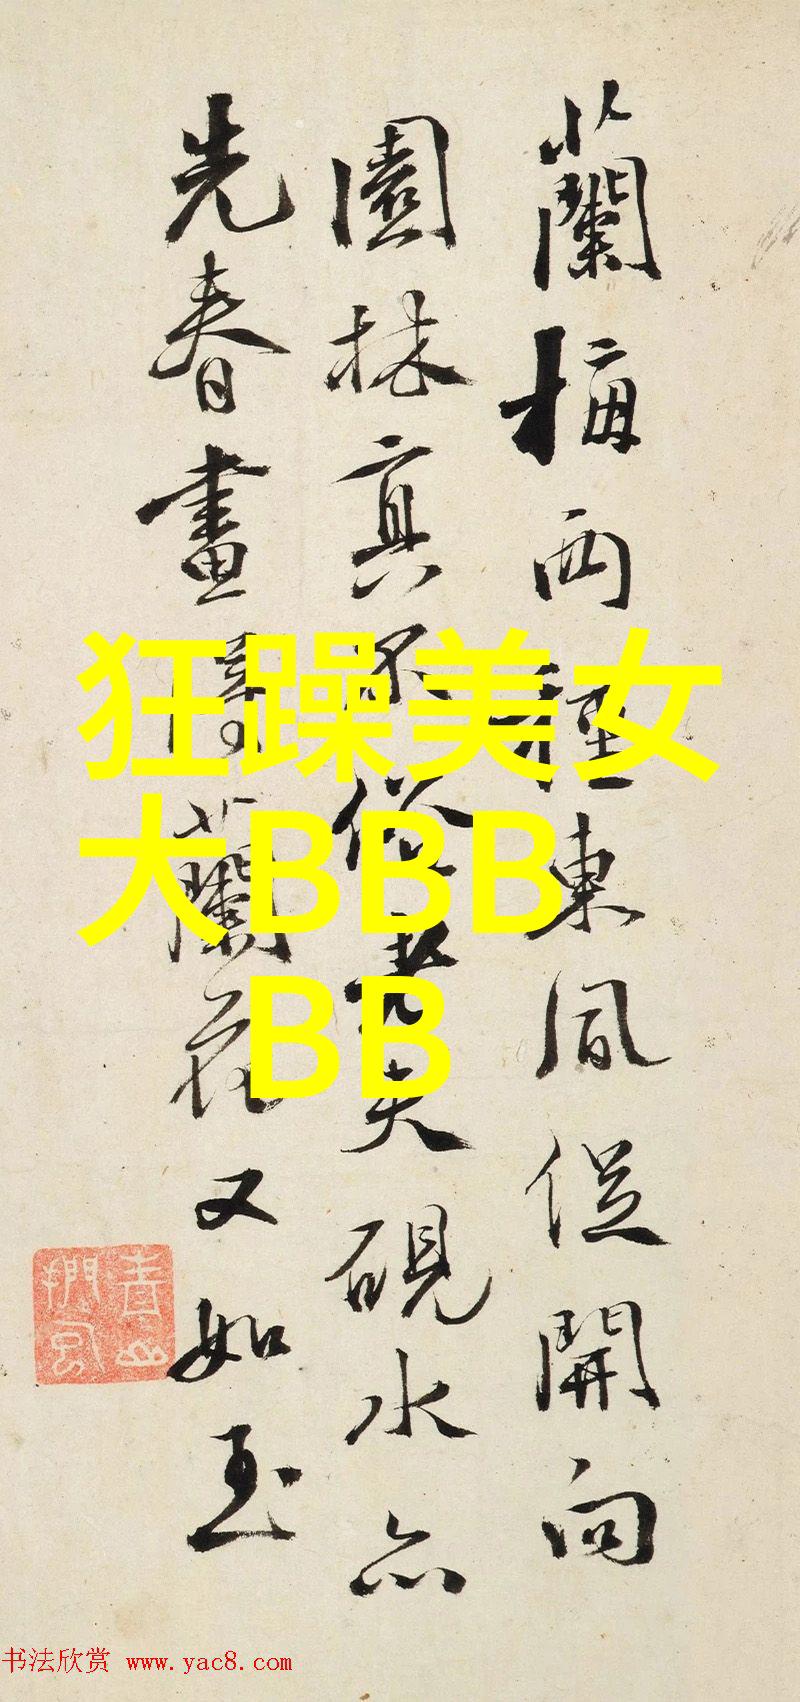 蘭梅两種東風従開向
園林真不俗老夫硯水亦
先春畫得蘭花又如玉
狂躁美女
大BBB
BB
书法欣赏 www.yac8.com